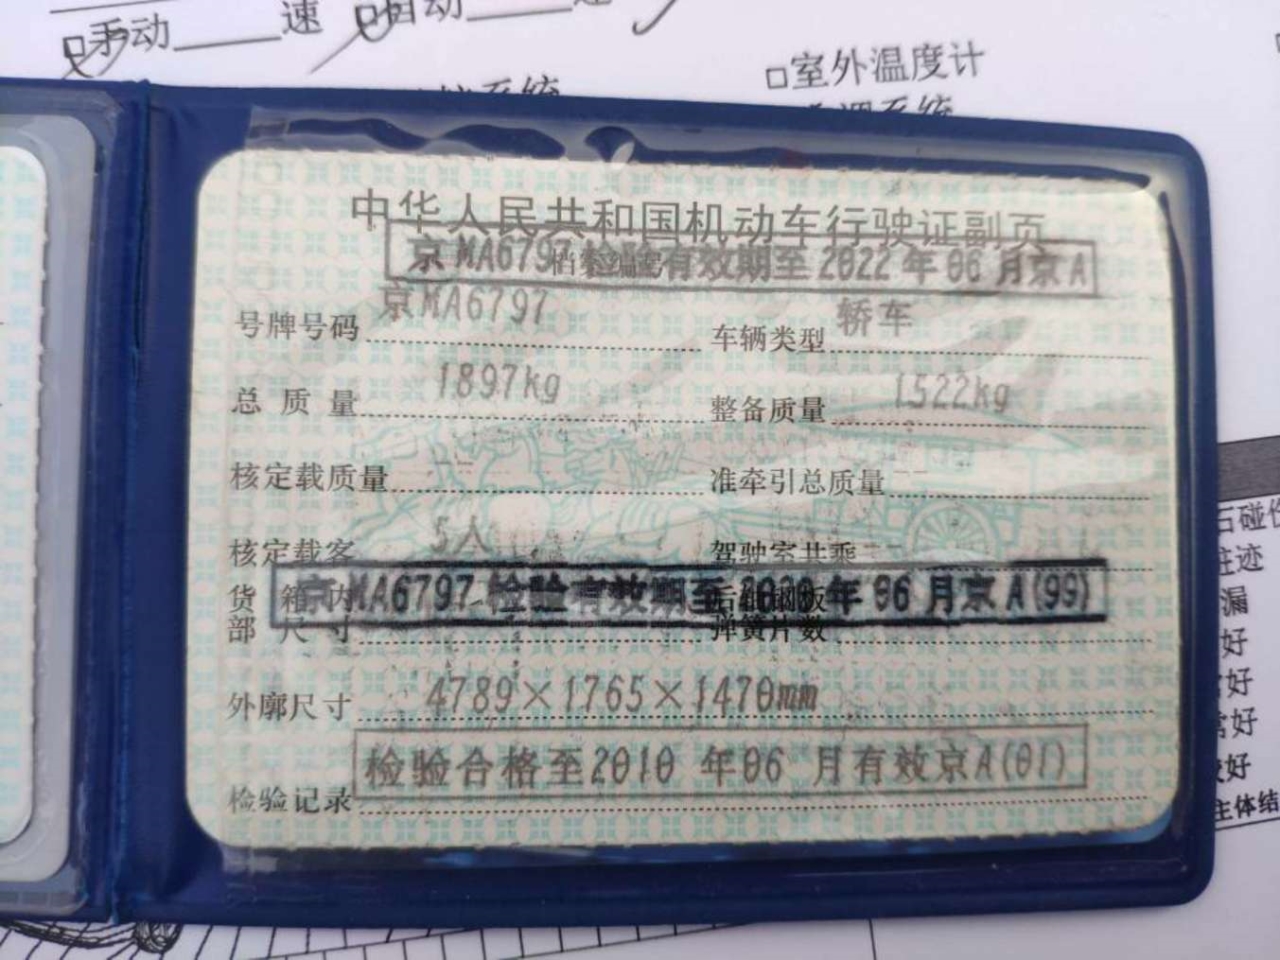 手动 速 自动 速
室外温度计
系统 系统
中华人民共和国机动车行驶证副页
京MA6797检验有效期至2022年06月京A
号牌号码 京MA6797 车辆类型 轿车
总质量 1897kg 整备质量 1522kg
核定载质量 -- 准牵引总质量 --
核定载客 5人 驾驶室共乘 --
京MA6797检验有效期至2020年06月京A(99)
货箱内部尺寸 后轴钢板弹簧片数
外廓尺寸 4789×1765×1470mm
检验合格至2010年06月有效京A(01)
检验记录
石碰
迹
漏
好
好
常好
好
主体结